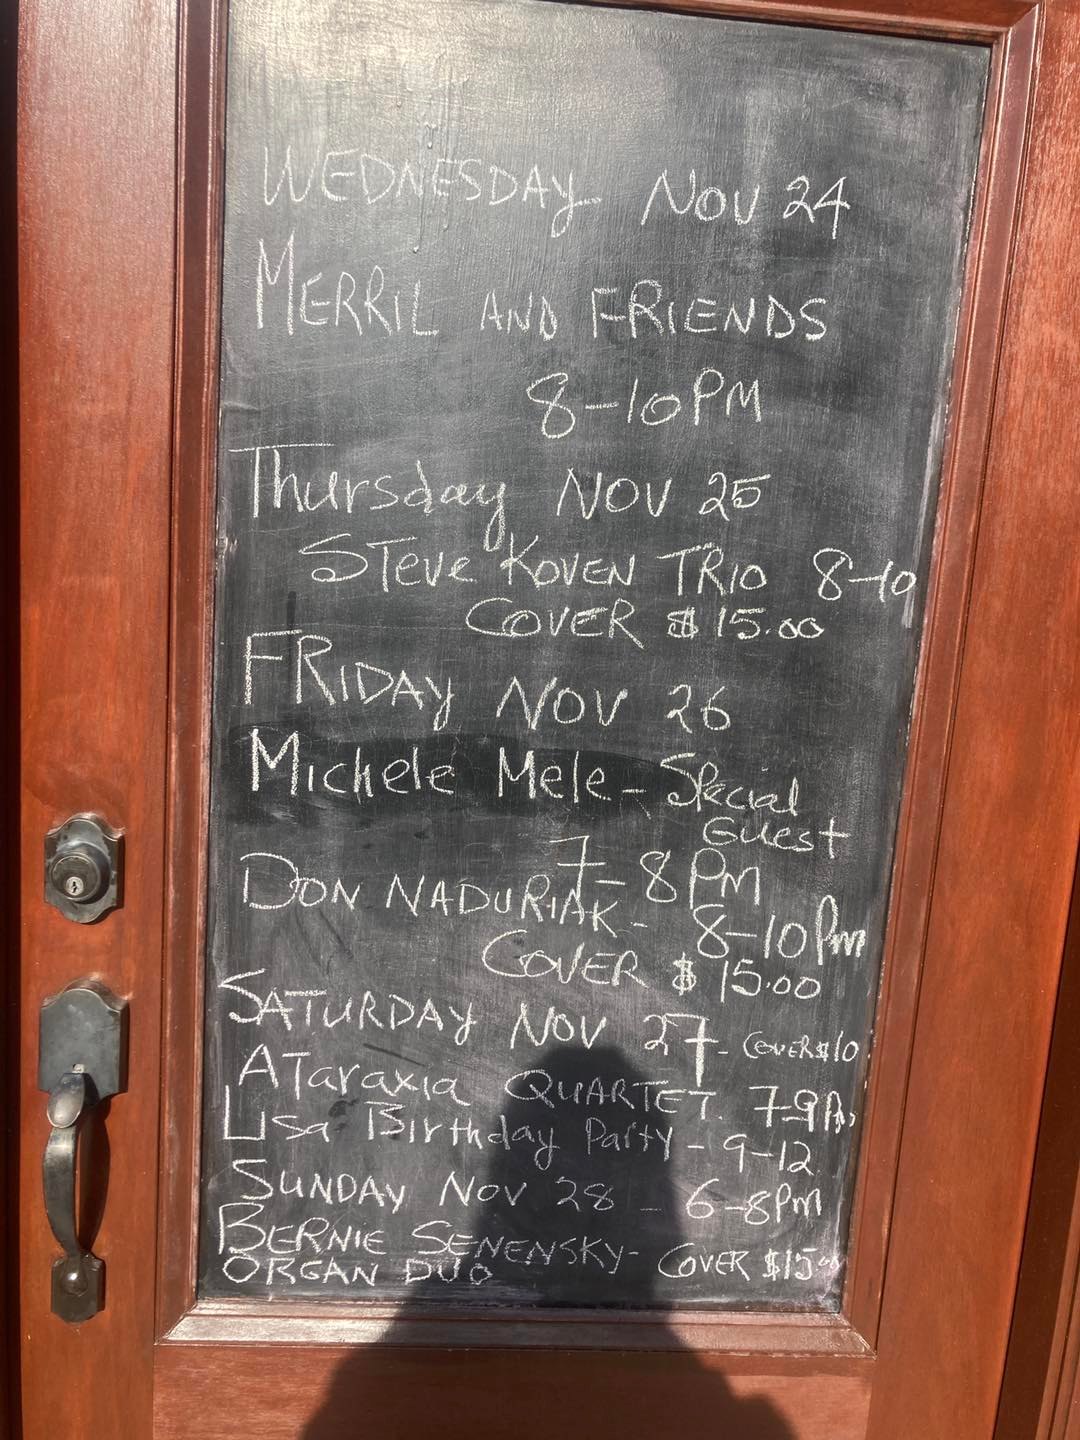 WEDNESDAY NOV 24
MERRIL AND FRIENDS
8-10PM
Thursday NOV 25
STEVE KOVEN TRIO 8-10
COVER $15.00
FRIDAY NOV 26
Michele Mele - Special
Guest
7-8PM
DON NADURIAK - 8-10Pm
COVER $15.00
SATURDAY NOV 27 - COVER $10
ATaraxia QUARTET. 7-9Pm
Lisa Birthday Party - 9-12
SUNDAY NOV 28 - 6-8Pm
BERNIE SENENSKY - COVER $15.00
ORGAN DUO